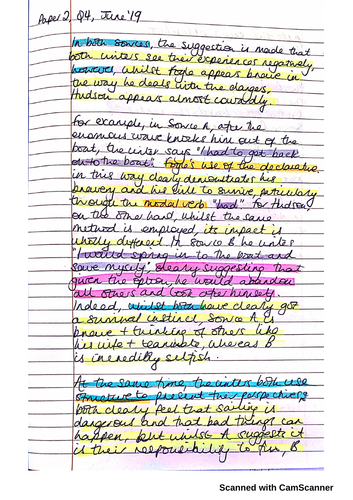 Paper 2, Q4, June '19
In both Sources, the suggestion is made that
both writers see their experiences negatively,
however, whilst Fogle appears brave in
the way he deals with the danger,
Hudson appears almost cowardly.
For example, in Source A, after the
enormous wave knocks him out of the
boat, the writer says "I had to get back
onto the boat". Fogle's use of the declarative
in this way clearly demonstrates his
bravery and his will to survive, particularly
through the modal verb "had". For Hudson
on the other hand, whilst the same
method is employed, its impact is
wholly different. In Source B he writes
"I would spring in to the boat and
save myself", clearly suggesting that
given the option, he would abandon
all others and look after himself.
Indeed, whilst both have clearly got
a survival instinct, Source A is
brave + thinking of others like
his wife + teammate, whereas B
is incredibly selfish.
At the same time, the writers both use
structure to present their perspectives;
both clearly feel that sailing is
dangerous and that bad things can
happen, but whilst A suggests it
is their responsibility to , B
Scanned with CamScanner